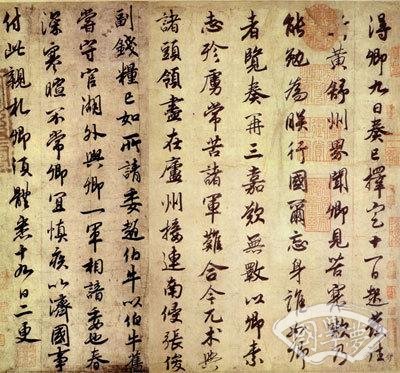 得卿九日奏已擇定十一日起發往
蘄黃舒州界聞卿見苦寒嗽乃
能勉為朕行國爾忘身誰如卿
者覽奏再三嘉歎無斁以卿素
志殄虜常苦諸軍難合今兀朮與
諸頭領盡在廬州接連南侵張俊
副錢糧已如所請委趙伯牛以伯牛舊
嘗守官湖外與卿一軍相諳委也春
深寒暄不常卿宜慎疾以濟國事
付此親札卿須體悉十九日二更
國學夢